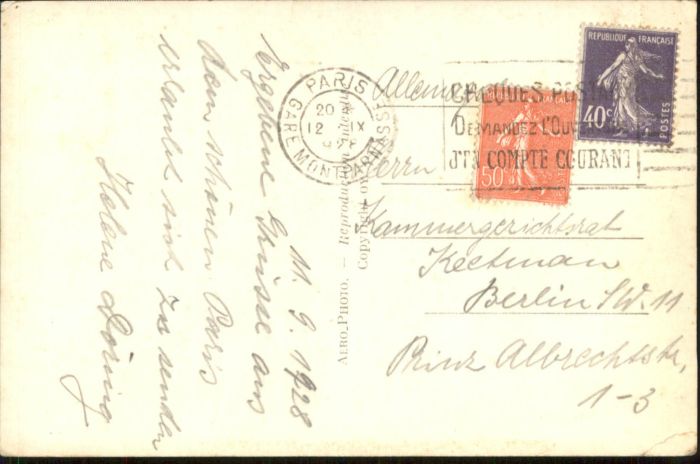 11. 9. 1928
Ergebene Grüsse aus
dem schönen Paris
erlaubt sich zu senden
Helene Döring
AERO-PHOTO. — Reproduction
Copyright
PARIS
GARE MONTPARNASSE
20
12 IX
CHEQUES POSTAUX
DEMANDEZ L'OUV
D'UN COMPTE COURANT
REPUBLIQUE FRANÇAISE
40c
POSTES
50c
Herrn
Kammergerichtsrat
Keetman
Berlin SW. 11
Prinz Albrechtstr.
1-3